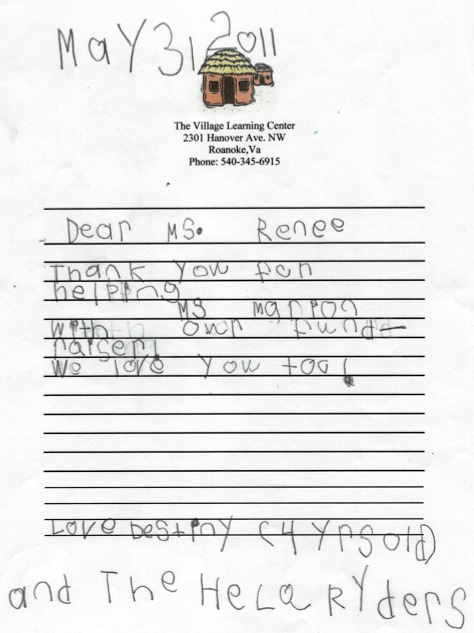 MaY 31 2011
The Village Learning Center
2301 Hanover Ave. NW
Roanoke,Va
Phone: 540-345-6915
Dear Ms. Renee
Thank you for
helping
Ms Marion
with our fund-
raiser!
We love you too!
Love Destiny (4 yrs old)
and The HeLa RYders